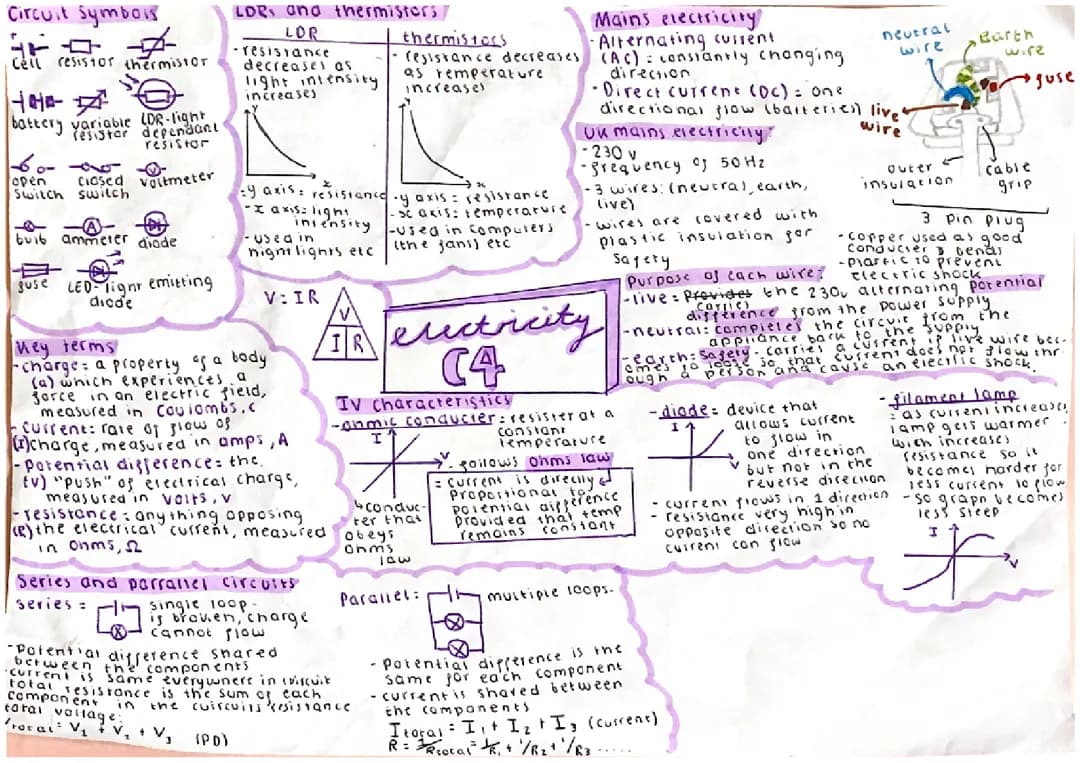 Circuit Symbols
cell resistor thermistor
battery variable resistor LDR-light dependant resistor
open switch closed switch voltmeter
bulb ammeter diode
fuse LED-light emitting diode
LDRs and thermistors
LDR
- resistance
decreases as
light intensity
increases
y
x
- y axis = resistance
- x axis: light
intensity
- used in
nightlights etc
thermistors
- resistance decreases
as temperature
increases
y
x
- y axis = resistance
- x axis: temperature
- used in computers
(the fans) etc
Mains electricity
- Alternating current
(AC): constantly changing
direction
- Direct current (DC): one
directional flow (batteries)
UK mains electricity:
- 230 v
- frequency of 50Hz
- 3 wires: (neutral), earth,
live)
- wires are covered with
plastic insulation for
safety
neutral
wire
Earth
wire
fuse
live
wire
outer
insulation
cable
grip
3 pin plug
- copper used as good
conducter & bends
- plastic to prevent
electric shock
Purpose of each wire:
- live: Provides carries the 230v alternating potential
difference from the power supply
- neutral: completes the circuit from the
appliance back to the supply
- earth: Safety - carries a current if live wire bec-
omes so loose so that current does not flow thr-
ough a person and cause an electric shock.
V = IR
V
I R
electricity
C4
Key terms
- charge: a property of a body
(Q) which experiences a
force in an electric field,
measured in Coulombs, C
- current: rate of flow of
(I) charge, measured in amps, A
- potential difference: the
(V) "push" of electrical charge,
measured in volts, v
- resistance: anything opposing
(R) the electrical current, measured
in Ohms, Ω
IV characteristics
- ohmic conducter: resister at a
constant
temperature
I
V
- follows Ohms law
= current is directly
proportional to
potential difference
provided that temp
remains constant
conduc-
ter that
obeys
Ohms
law
- diode: device that
allows current
to flow in
one direction
but not in the
reverse direction
I
V
- current flows in 1 direction
- resistance very high in
opposite direction so no
current can flow
- filament lamp
: as current increases,
lamp gets warmer
wich increases
resistance so it
becomes harder for
less current to flow
- so graph becomes
less steep
I
V
Series and parrallel circuits
series = single loop -
is broken, charge
cannot flow
- potential difference shared
between the components
- current is same everywhere in circuit
total resistance is the sum of each
component in the cuircuits resistance
total voltage:
Vtotal = V1 + V2 + V3 (PD)
Parallel: multiple loops.
- potential difference is the
same for each component
- current is shared between
the components
Itotal = I1 + I2 + I3 (current)
R = 1/Rtotal = 1/R1 + 1/R2 + 1/R3 .....